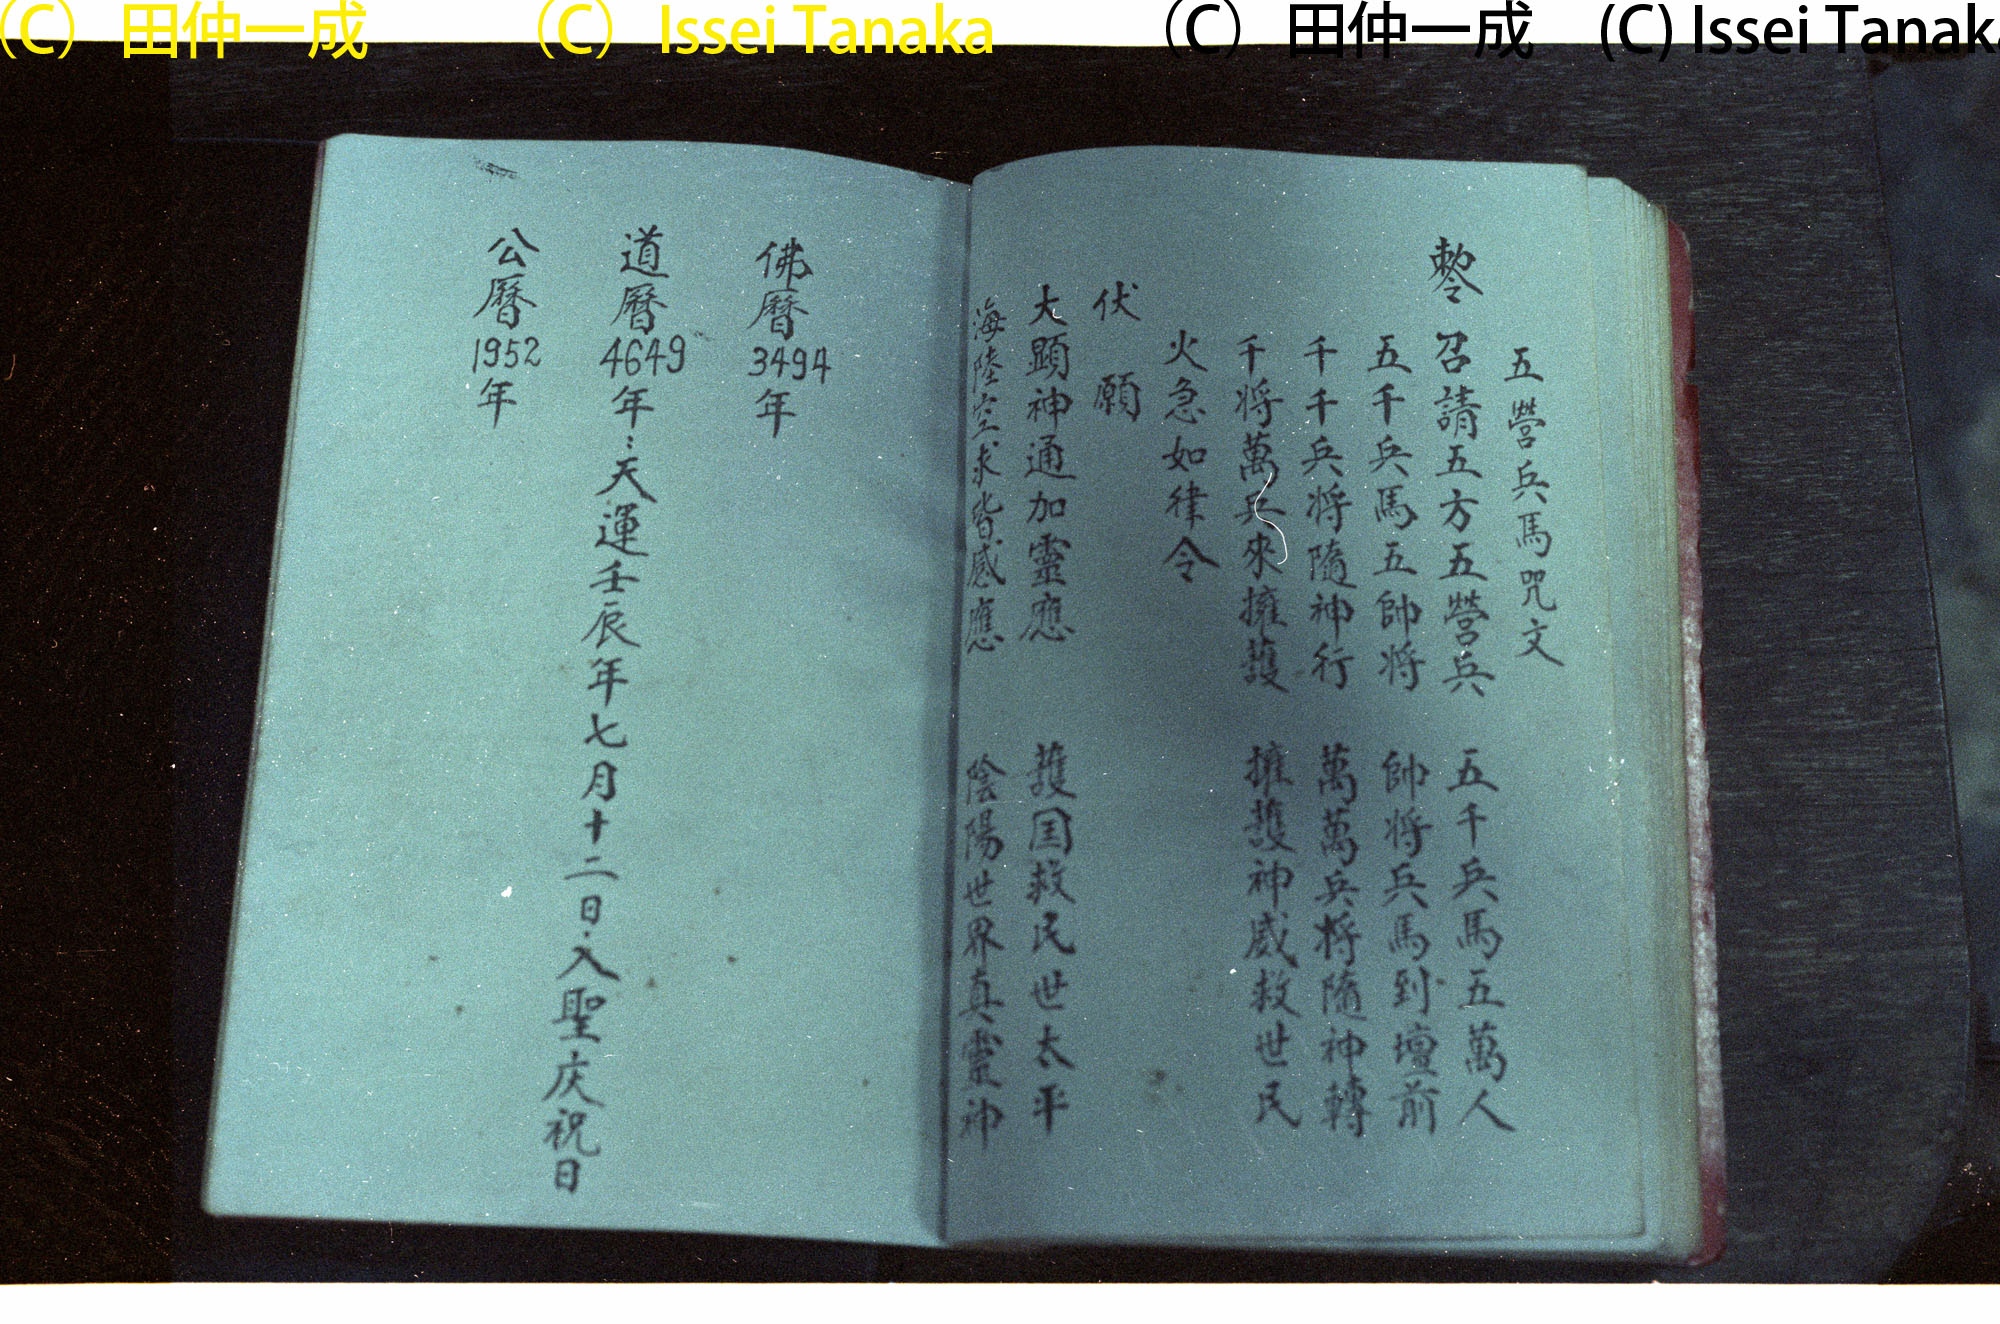 (C) 田仲一成 (C) Issei Tanaka (C) 田仲一成 (C) Issei Tanaka
五營兵馬咒文
勅令 召請五方五營兵 五千兵馬五萬人
五千兵馬五帥将 帥将兵馬到壇前
千千兵将隨神行 萬萬兵将隨神轉
千将萬兵來擁護 擁護神威救世民
火急如律令
伏願
大顕神通加靈應 護国救民世太平
海陸空求皆感應 陰陽世界真靈神
佛曆3494年
道曆4649年：天運壬辰年七月十二日·入聖庆祝日
公曆1952年